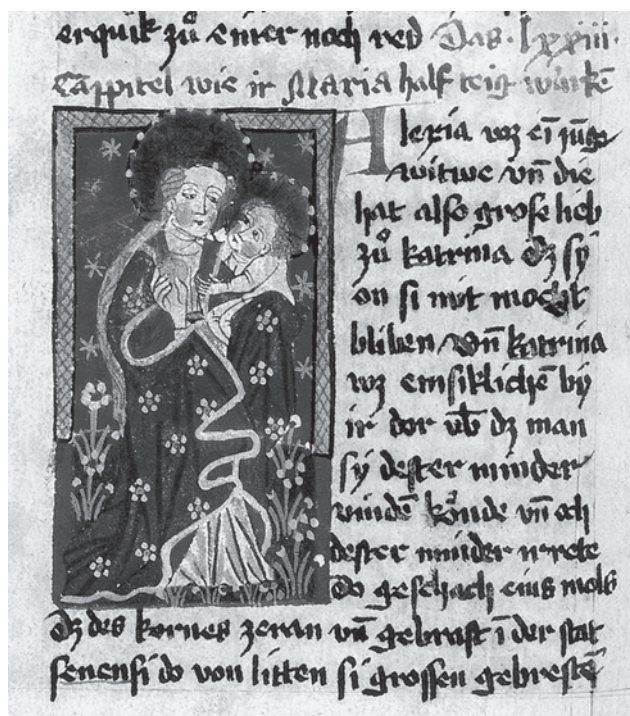 erquik zů einer noch red Das · lxxiii ·
Cappitel wie ir Maria half teig wurkē
Alexia wz eī iūge
witwe vn̄ die
hat also grose lieb
zů katrina dz sy
on si nit mocht
bliben vn̄ katrina
wz emsiklichē by
ir dor vb̄ dz man
sy dester minder
vindē kǒnde vn̄ och
dester minder irrete
do geschach eins mols
dz des kornes zeran vn̄ gebrast ī der stat
senensi do von litten si grossen gebrestē